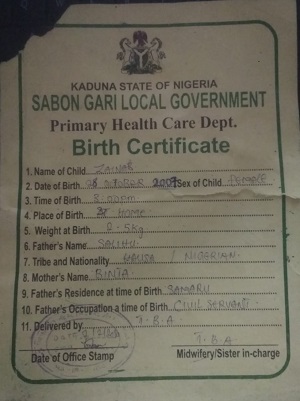 KADUNA STATE OF NIGERIA
SABON GARI LOCAL GOVERNMENT
Primary Health Care Dept.
Birth Certificate
1. Name of Child ZAINAB
2. Date of Birth OCTOBER Sex of Child FEMALE
3. Time of Birth
4. Place of Birth AT HOME
5. Weight at Birth 2.5kg
6. Father's Name SALIHU
7. Tribe and Nationality HAUSA / NIGERIAN
8. Mother's Name BINTA
9. Father's Residence at time of Birth SAMARU
10. Father's Occupation a time of Birth CIVIL SERVANT
11. Delivered by T.B.A
T.B.A
Date of Office Stamp Midwifery/Sister in-charge